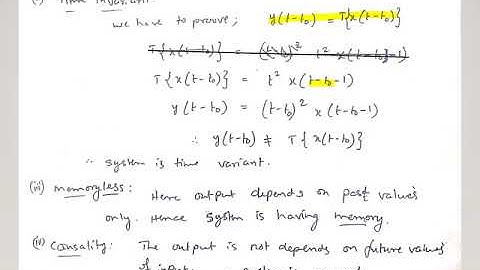 Time invariant:
we have to proove; y(t-t₀) = T{x(t-t₀)}
T{x(t-t₀)} = t² x(t-t₀-1)
y(t-t₀) = (t-t₀)² x(t-t₀-1)
∴ y(t-t₀) ≠ T{x(t-t₀)}
∴ system is time variant.
(iii) memoryless: Here output depends on past values
only. Hence System is having memory.
(iv) Causality: The output is not depends on future values
of